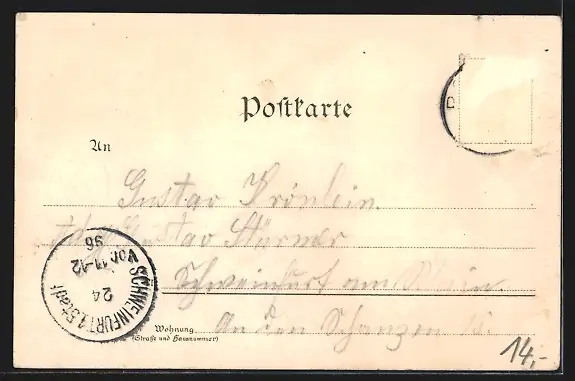 Postkarte
An
Gustav Krönlein.
Adr. Gustav Störmer
Schweinfurt am Main.
Wohnung An den Schanzen 15.
(Straße und Hausnummer)
SCHWEINFURT 1. Stadt
24
Vor. 11-12
96
14,-